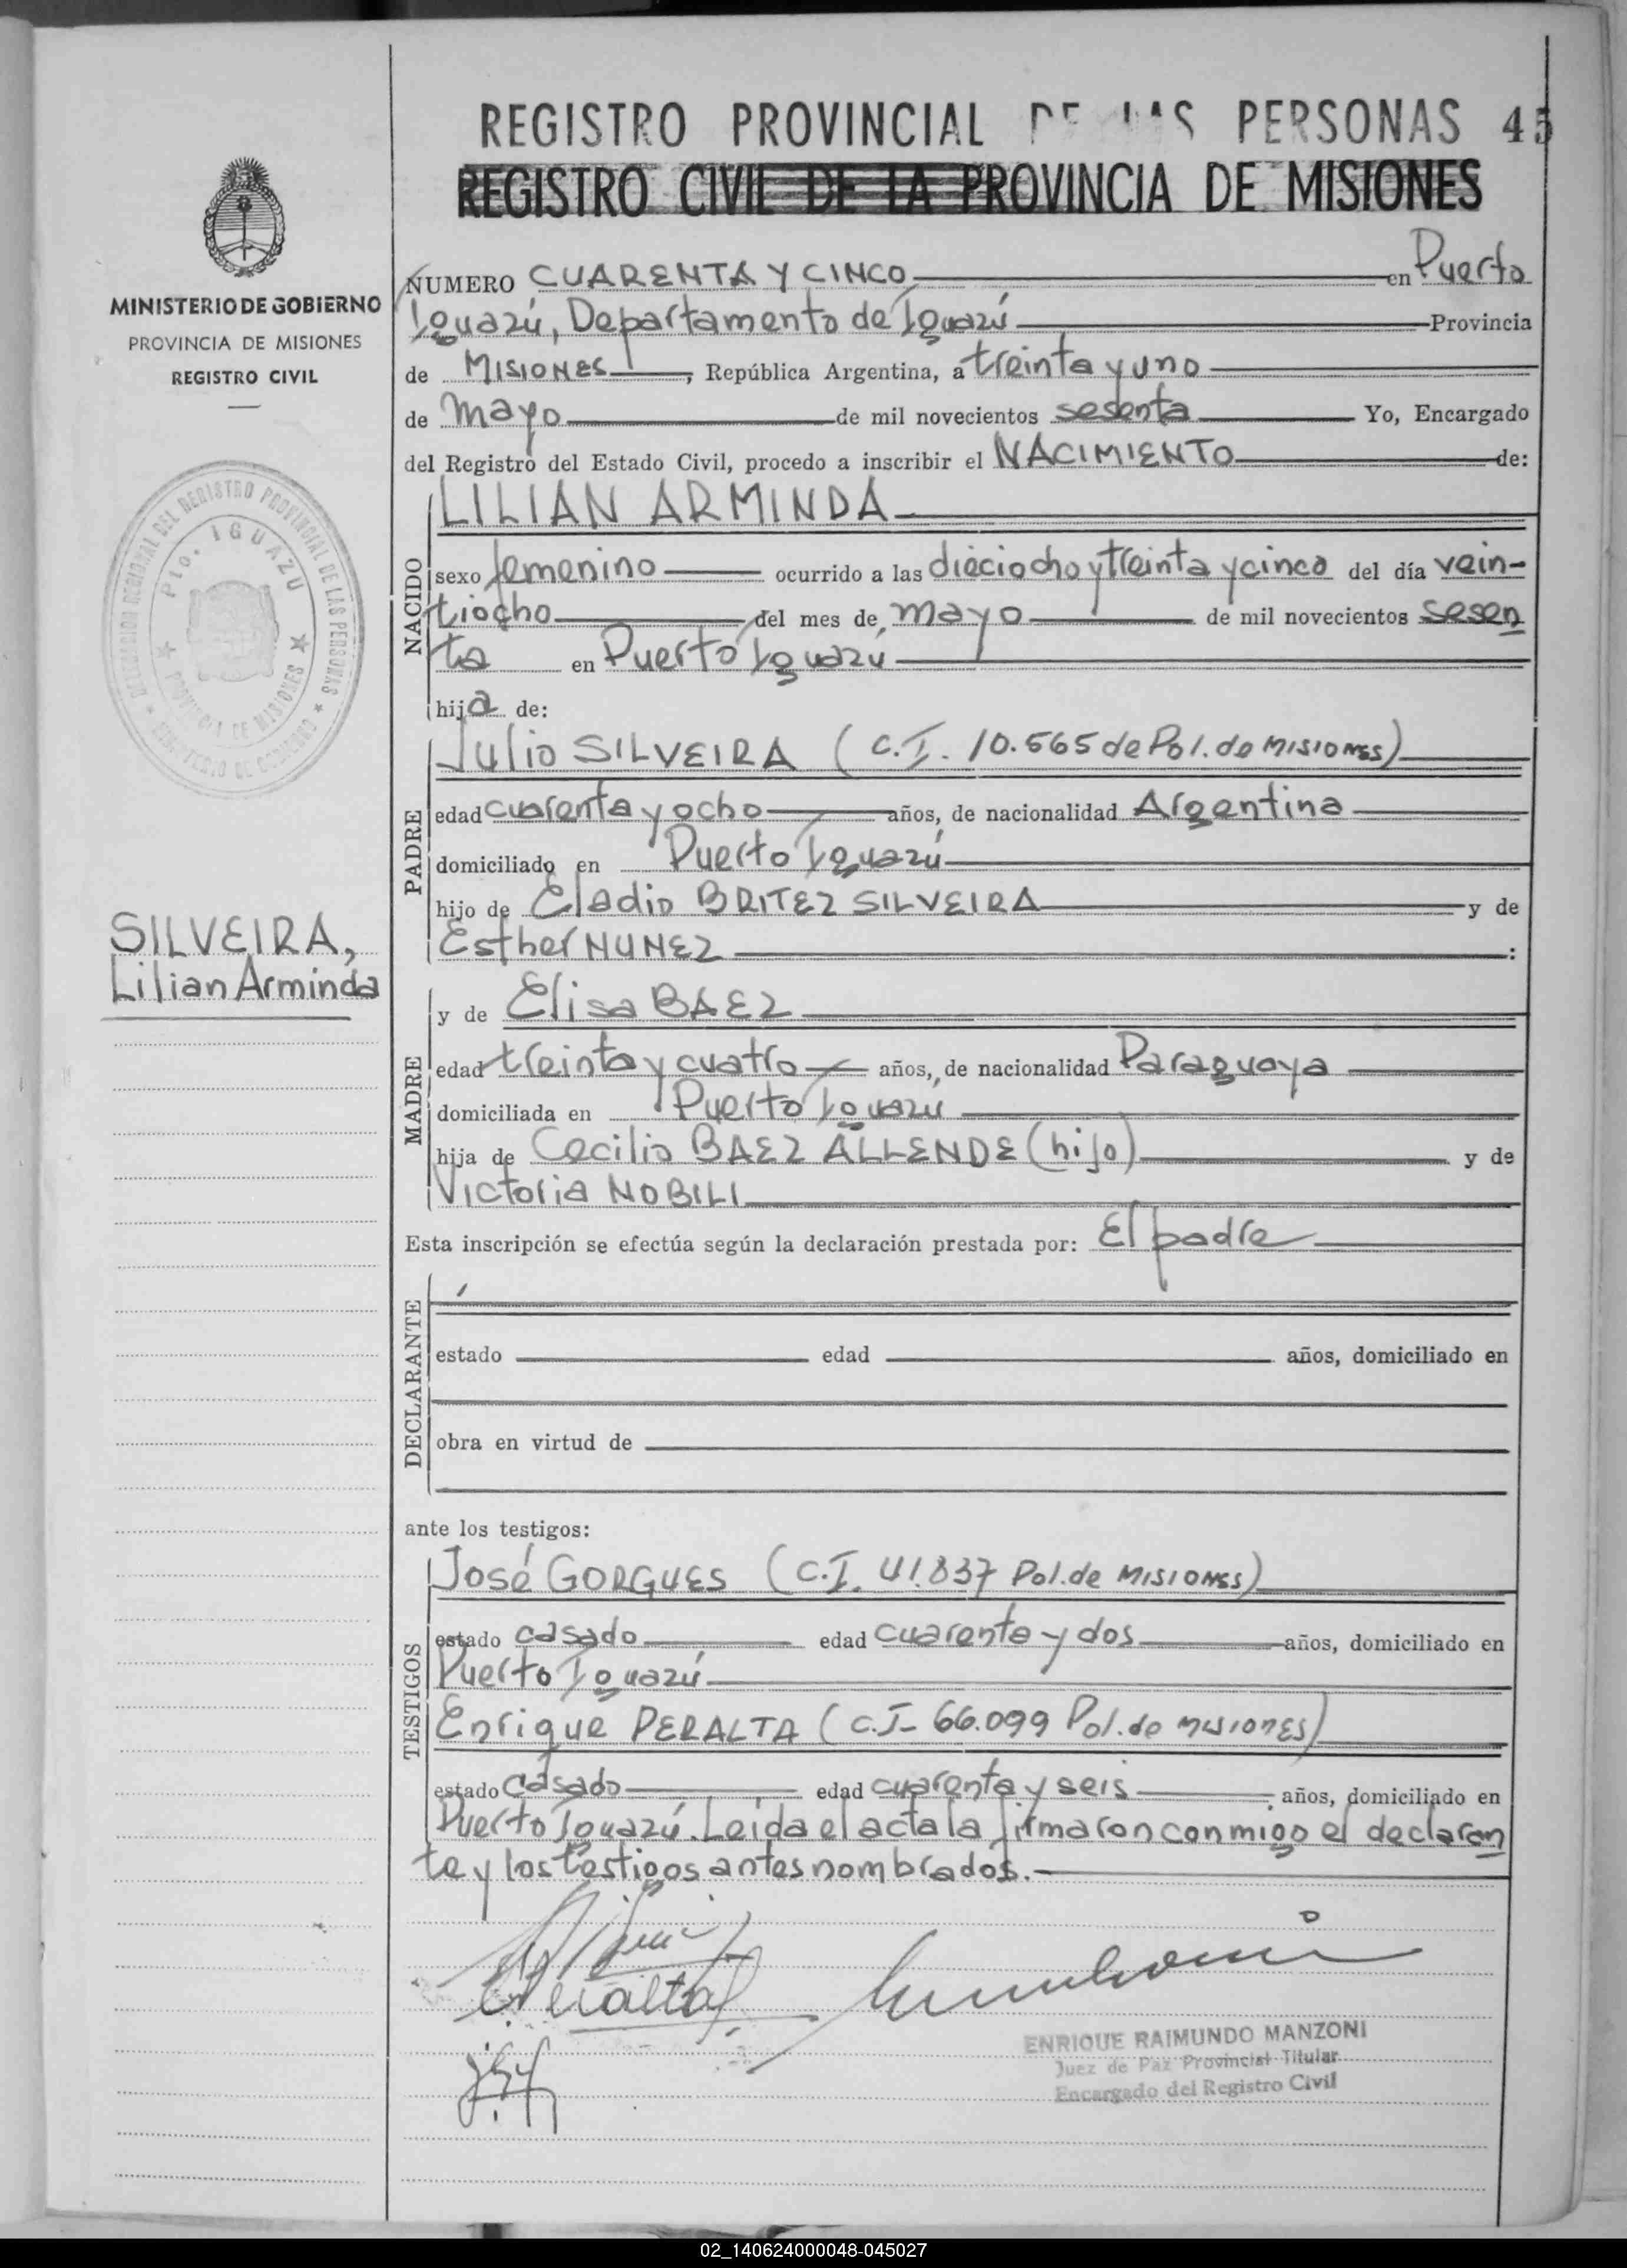 REGISTRO PROVINCIAL DE LAS PERSONAS 45
REGISTRO CIVIL DE LA PROVINCIA DE MISIONES
MINISTERIO DE GOBIERNO
PROVINCIA DE MISIONES
REGISTRO CIVIL
DELEGACION REGIONAL DEL REGISTRO PROVINCIAL DE LAS PERSONAS
Pto. IGUAZU
PROVINCIA DE MISIONES
MINISTERIO DE GOBIERNO
SILVEIRA,
Lilian Arminda
NUMERO CUARENTA Y CINCO en Puerto
Iguazú, Departamento de Iguazú Provincia
de MISIONES, República Argentina, a treinta y uno
de mayo de mil novecientos sesenta Yo, Encargado
del Registro del Estado Civil, procedo a inscribir el NACIMIENTO de:
NACIDO
LILIAN ARMINDA
sexo femenino ocurrido a las dieciocho y treinta y cinco del día vein-
tiocho del mes de mayo de mil novecientos sesen
ta en Puerto Iguazú
hija de:
PADRE
Julio SILVEIRA (C.I. 10.565 de Pol. de MISIONES)
edad cuarenta y ocho años, de nacionalidad Argentina
domiciliado en Puerto Iguazú
hijo de Eladio BRITEZ SILVEIRA y de
Esther NUNEZ :
MADRE
y de Elisa BAEZ
edad treinta y cuatro años, de nacionalidad Paraguaya
domiciliada en Puerto Iguazú
hija de Cecilio BAEZ ALLENDE (hijo) y de
Victoria NOBILI
Esta inscripción se efectúa según la declaración prestada por: El padre
DECLARANTE
estado edad años, domiciliado en
obra en virtud de
ante los testigos:
TESTIGOS
José GORGUES (C.I. 41.837 Pol. de MISIONES)
estado casado edad cuarenta y dos años, domiciliado en
Puerto Iguazú
Enrique PERALTA (C.I- 66.099 Pol. de MISIONES)
estado casado edad cuarenta y seis años, domiciliado en
Puerto Iguazú. Leída el acta la firmaron conmigo el declaran
te y los testigos antes nombrados.-
Peralta
ENRIQUE RAIMUNDO MANZONI
Juez de Paz Provincial Titular
Encargado del Registro Civil
02_140624000048-045027